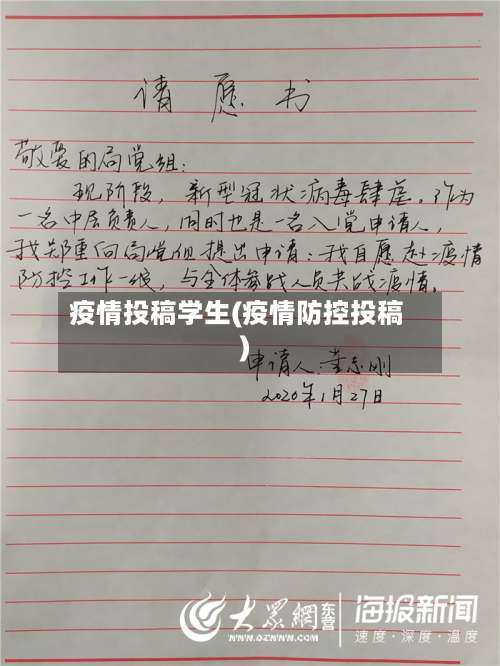 请愿书
敬爱的局党组:
现阶段,新型冠状病毒肆虐。作为
一名中层负责人,同时也是一名入党申请人,
我郑重向局党组提出申请:我自愿赴疫情
防控工作一线,与全体参战人员共战疫情。
疫情投稿学生(疫情防控投稿
)
申请人:董志刚
2020年1月27日
大众网 东营 海报新闻
www.dzwww.com 速度·深度·温度